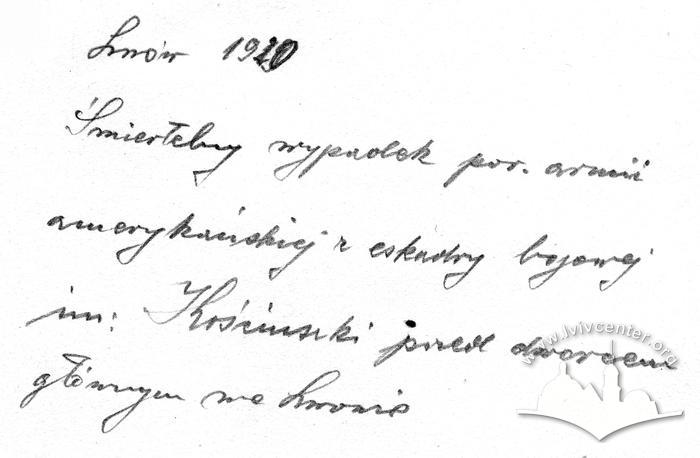 Lwów 1920
Śmiertelny wypadek por. armii
amerykańskiej z eskadry bojowej
im: Kościuszki przed dworcem
głównym we Lwowie
www.lvivcenter.org